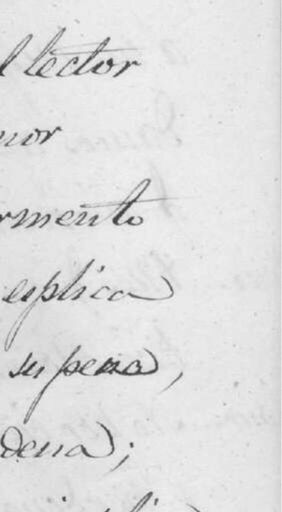 l lector
mor
rmento
esplica
su pena,
dena;